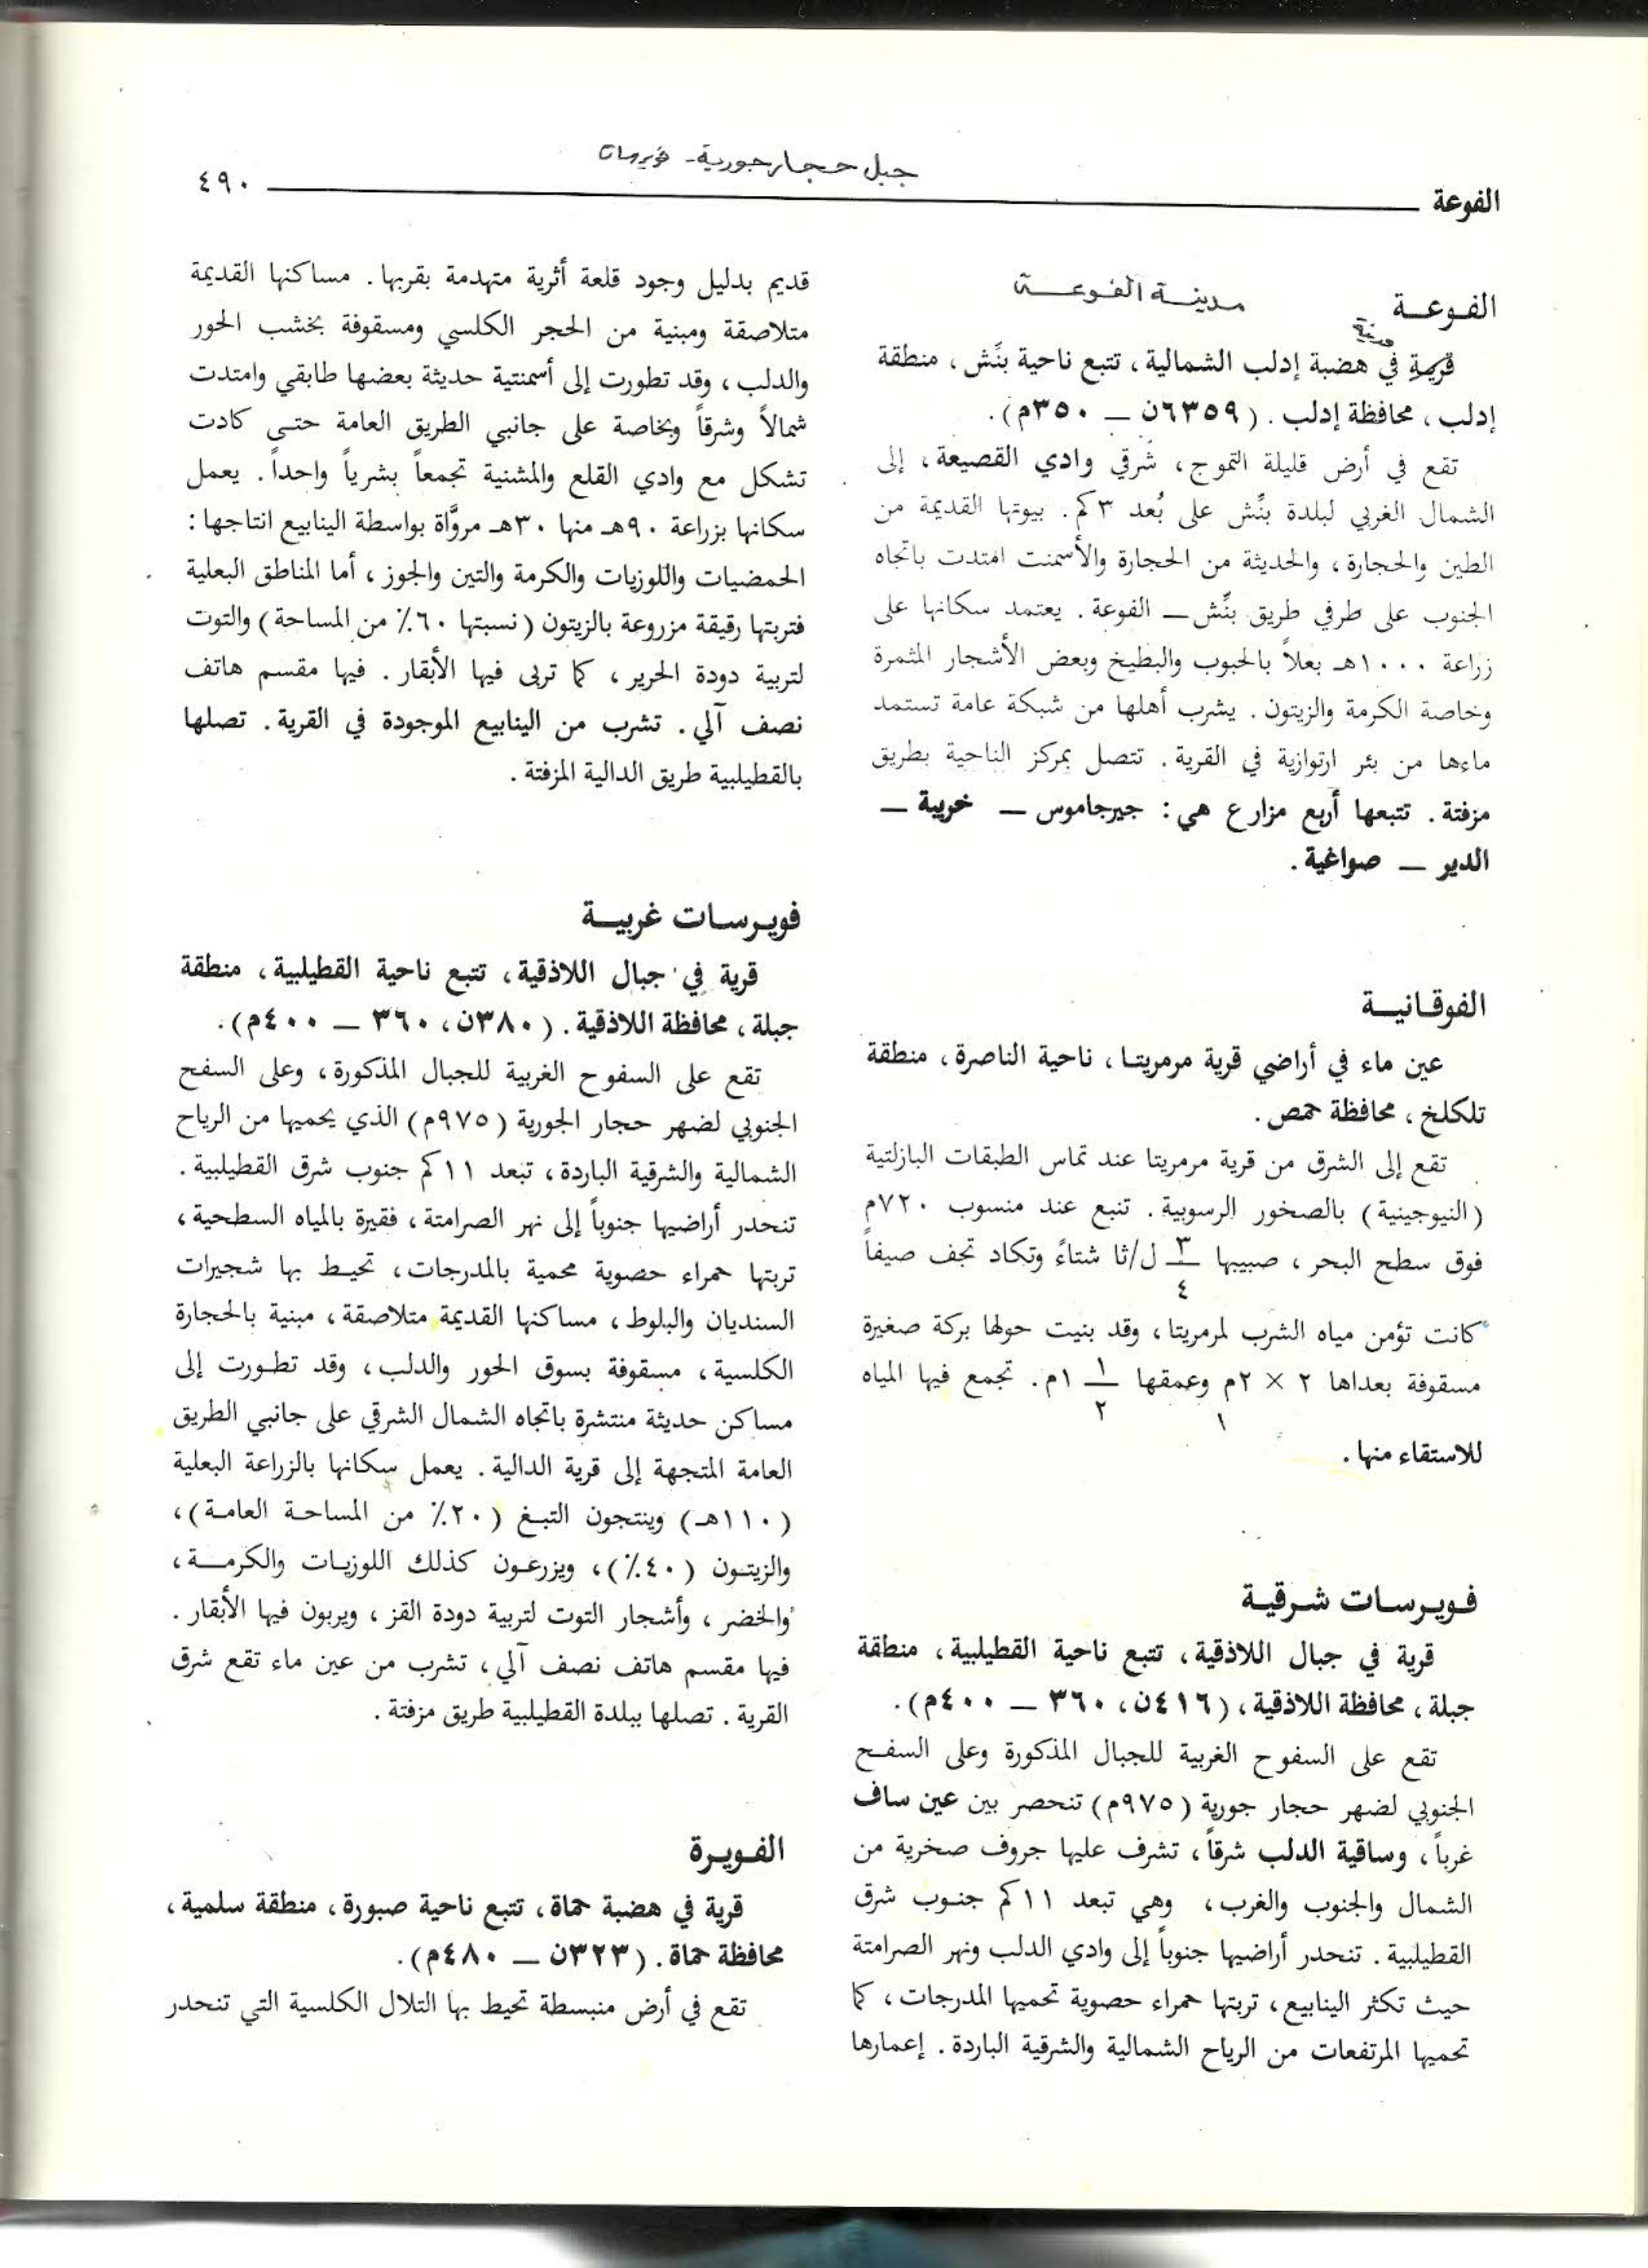 جبل حجار جورية - فويرسات
الفوعة ٤٩٠
الفوعة مدينة الفوعة
مدينة
قرية في هضبة إدلب الشمالية، تتبع ناحية بنِّش، منطقة
إدلب، محافظة إدلب. (٦٣٥٩ن — ٣٥٠م).
تقع في أرض قليلة التموج، شرقي وادي القصيعة، إلى
الشمال الغربي لبلدة بنِّش على بُعد ٣كم. بيوتها القديمة من
الطين والحجارة، والحديثة من الحجارة والأسمنت امتدت باتجاه
الجنوب على طرفي طريق بنِّش — الفوعة. يعتمد سكانها على
زراعة ١٠٠٠هـ بعلاً بالحبوب والبطيخ وبعض الأشجار المثمرة
وخاصة الكرمة والزيتون. يشرب أهلها من شبكة عامة تستمد
ماءها من بئر ارتوازية في القرية. تتصل بمركز الناحية بطريق
مزفتة. تتبعها أربع مزارع هي: جيرجاموس — خريبة —
الدير — صواغية.
الفوقانية
عين ماء في أراضي قرية مرمريتا، ناحية الناصرة، منطقة
تلكلخ، محافظة حمص.
تقع إلى الشرق من قرية مرمريتا عند تماس الطبقات البازلتية
(النيوجينية) بالصخور الرسوبية. تنبع عند منسوب ٧٢٠م
فوق سطح البحر، صبيبها ٣/٤ ل/ثا شتاءً وتكاد تجف صيفاً
كانت تؤمن مياه الشرب لمرمريتا، وقد بنيت حولها بركة صغيرة
مسقوفة بعداها ٢ × ٢م وعمقها ١/٢ ١م. تجمع فيها المياه
١
للاستقاء منها.
فويرسات شرقية
قرية في جبال اللاذقية، تتبع ناحية القطيلبية، منطقة
جبلة، محافظة اللاذقية، (٤١٦ن، ٣٦٠ — ٤٠٠م).
تقع على السفوح الغربية للجبال المذكورة وعلى السفح
الجنوبي لضهر حجار جورية (٩٧٥م) تنحصر بين عين ساف
غرباً، وساقية الدلب شرقاً، تشرف عليها جروف صخرية من
الشمال والجنوب والغرب، وهي تبعد ١١كم جنوب شرق
القطيلبية. تنحدر أراضيها جنوباً إلى وادي الدلب ونهر الصرامتة
حيث تكثر الينابيع، تربتها حمراء حصوية تحميها المدرجات، كما
تحميها المرتفعات من الرياح الشمالية والشرقية الباردة. إعمارها
قديم بدليل وجود قلعة أثرية متهدمة بقربها. مساكنها القديمة
متلاصقة ومبنية من الحجر الكلسي ومسقوفة بخشب الحور
والدلب، وقد تطورت إلى أسمنتية حديثة بعضها طابقي وامتدت
شمالاً وشرقاً وبخاصة على جانبي الطريق العامة حتى كادت
تشكل مع وادي القلع والمشنية تجمعاً بشرياً واحداً. يعمل
سكانها بزراعة ٩٠هـ منها ٣٠هـ مروَّاة بواسطة الينابيع انتاجها:
الحمضيات واللوزيات والكرمة والتين والجوز، أما المناطق البعلية
فتربتها رقيقة مزروعة بالزيتون (نسبتها ٦٠٪ من المساحة) والتوت
لتربية دودة الحرير، كما تربى فيها الأبقار. فيها مقسم هاتف
نصف آلي. تشرب من الينابيع الموجودة في القرية. تصلها
بالقطيلبية طريق الدالية المزفتة.
فويرسات غربية
قرية في جبال اللاذقية، تتبع ناحية القطيلبية، منطقة
جبلة، محافظة اللاذقية. (٣٨٠ن، ٣٦٠ — ٤٠٠م).
تقع على السفوح الغربية للجبال المذكورة، وعلى السفح
الجنوبي لضهر حجار الجورية (٩٧٥م) الذي يحميها من الرياح
الشمالية والشرقية الباردة، تبعد ١١كم جنوب شرق القطيلبية.
تنحدر أراضيها جنوباً إلى نهر الصرامتة، فقيرة بالمياه السطحية،
تربتها حمراء حصوية محمية بالمدرجات، تحيط بها شجيرات
السنديان والبلوط، مساكنها القديمة متلاصقة، مبنية بالحجارة
الكلسية، مسقوفة بسوق الحور والدلب، وقد تطورت إلى
مساكن حديثة منتشرة باتجاه الشمال الشرقي على جانبي الطريق
العامة المتجهة إلى قرية الدالية. يعمل سكانها بالزراعة البعلية
(١١٠هـ) وينتجون التبغ (٢٠٪ من المساحة العامة)،
والزيتون (٤٠٪)، ويزرعون كذلك اللوزيات والكرمة،
والخضر، وأشجار التوت لتربية دودة القز، ويربون فيها الأبقار.
فيها مقسم هاتف نصف آلي، تشرب من عين ماء تقع شرق
القرية. تصلها ببلدة القطيلبية طريق مزفتة.
الفويرة
قرية في هضبة حماة، تتبع ناحية صبورة، منطقة سلمية،
محافظة حماة. (٣٢٣ن — ٤٨٠م).
تقع في أرض منبسطة تحيط بها التلال الكلسية التي تنحدر